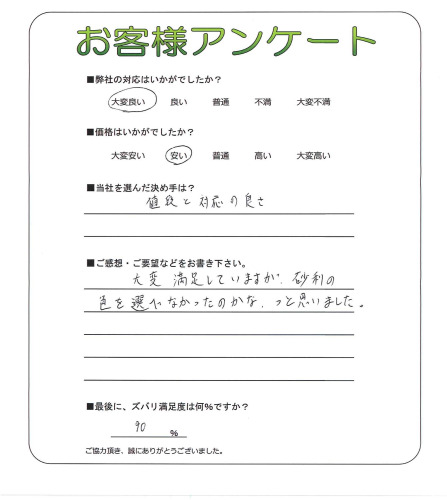 お客様アンケート
■弊社の対応はいかがでしたか？
大変良い 良い 普通 不満 大変不満
■価格はいかがでしたか？
大変安い 安い 普通 高い 大変高い
■当社を選んだ決め手は？
値段と対応の良さ
■ご感想・ご要望などをお書き下さい。
大変満足していますが、砂利の
色を選べなかったのかな、っと思いました。
■最後に、ズバリ満足度は何%ですか？
90 %
ご協力頂き、誠にありがとうございました。